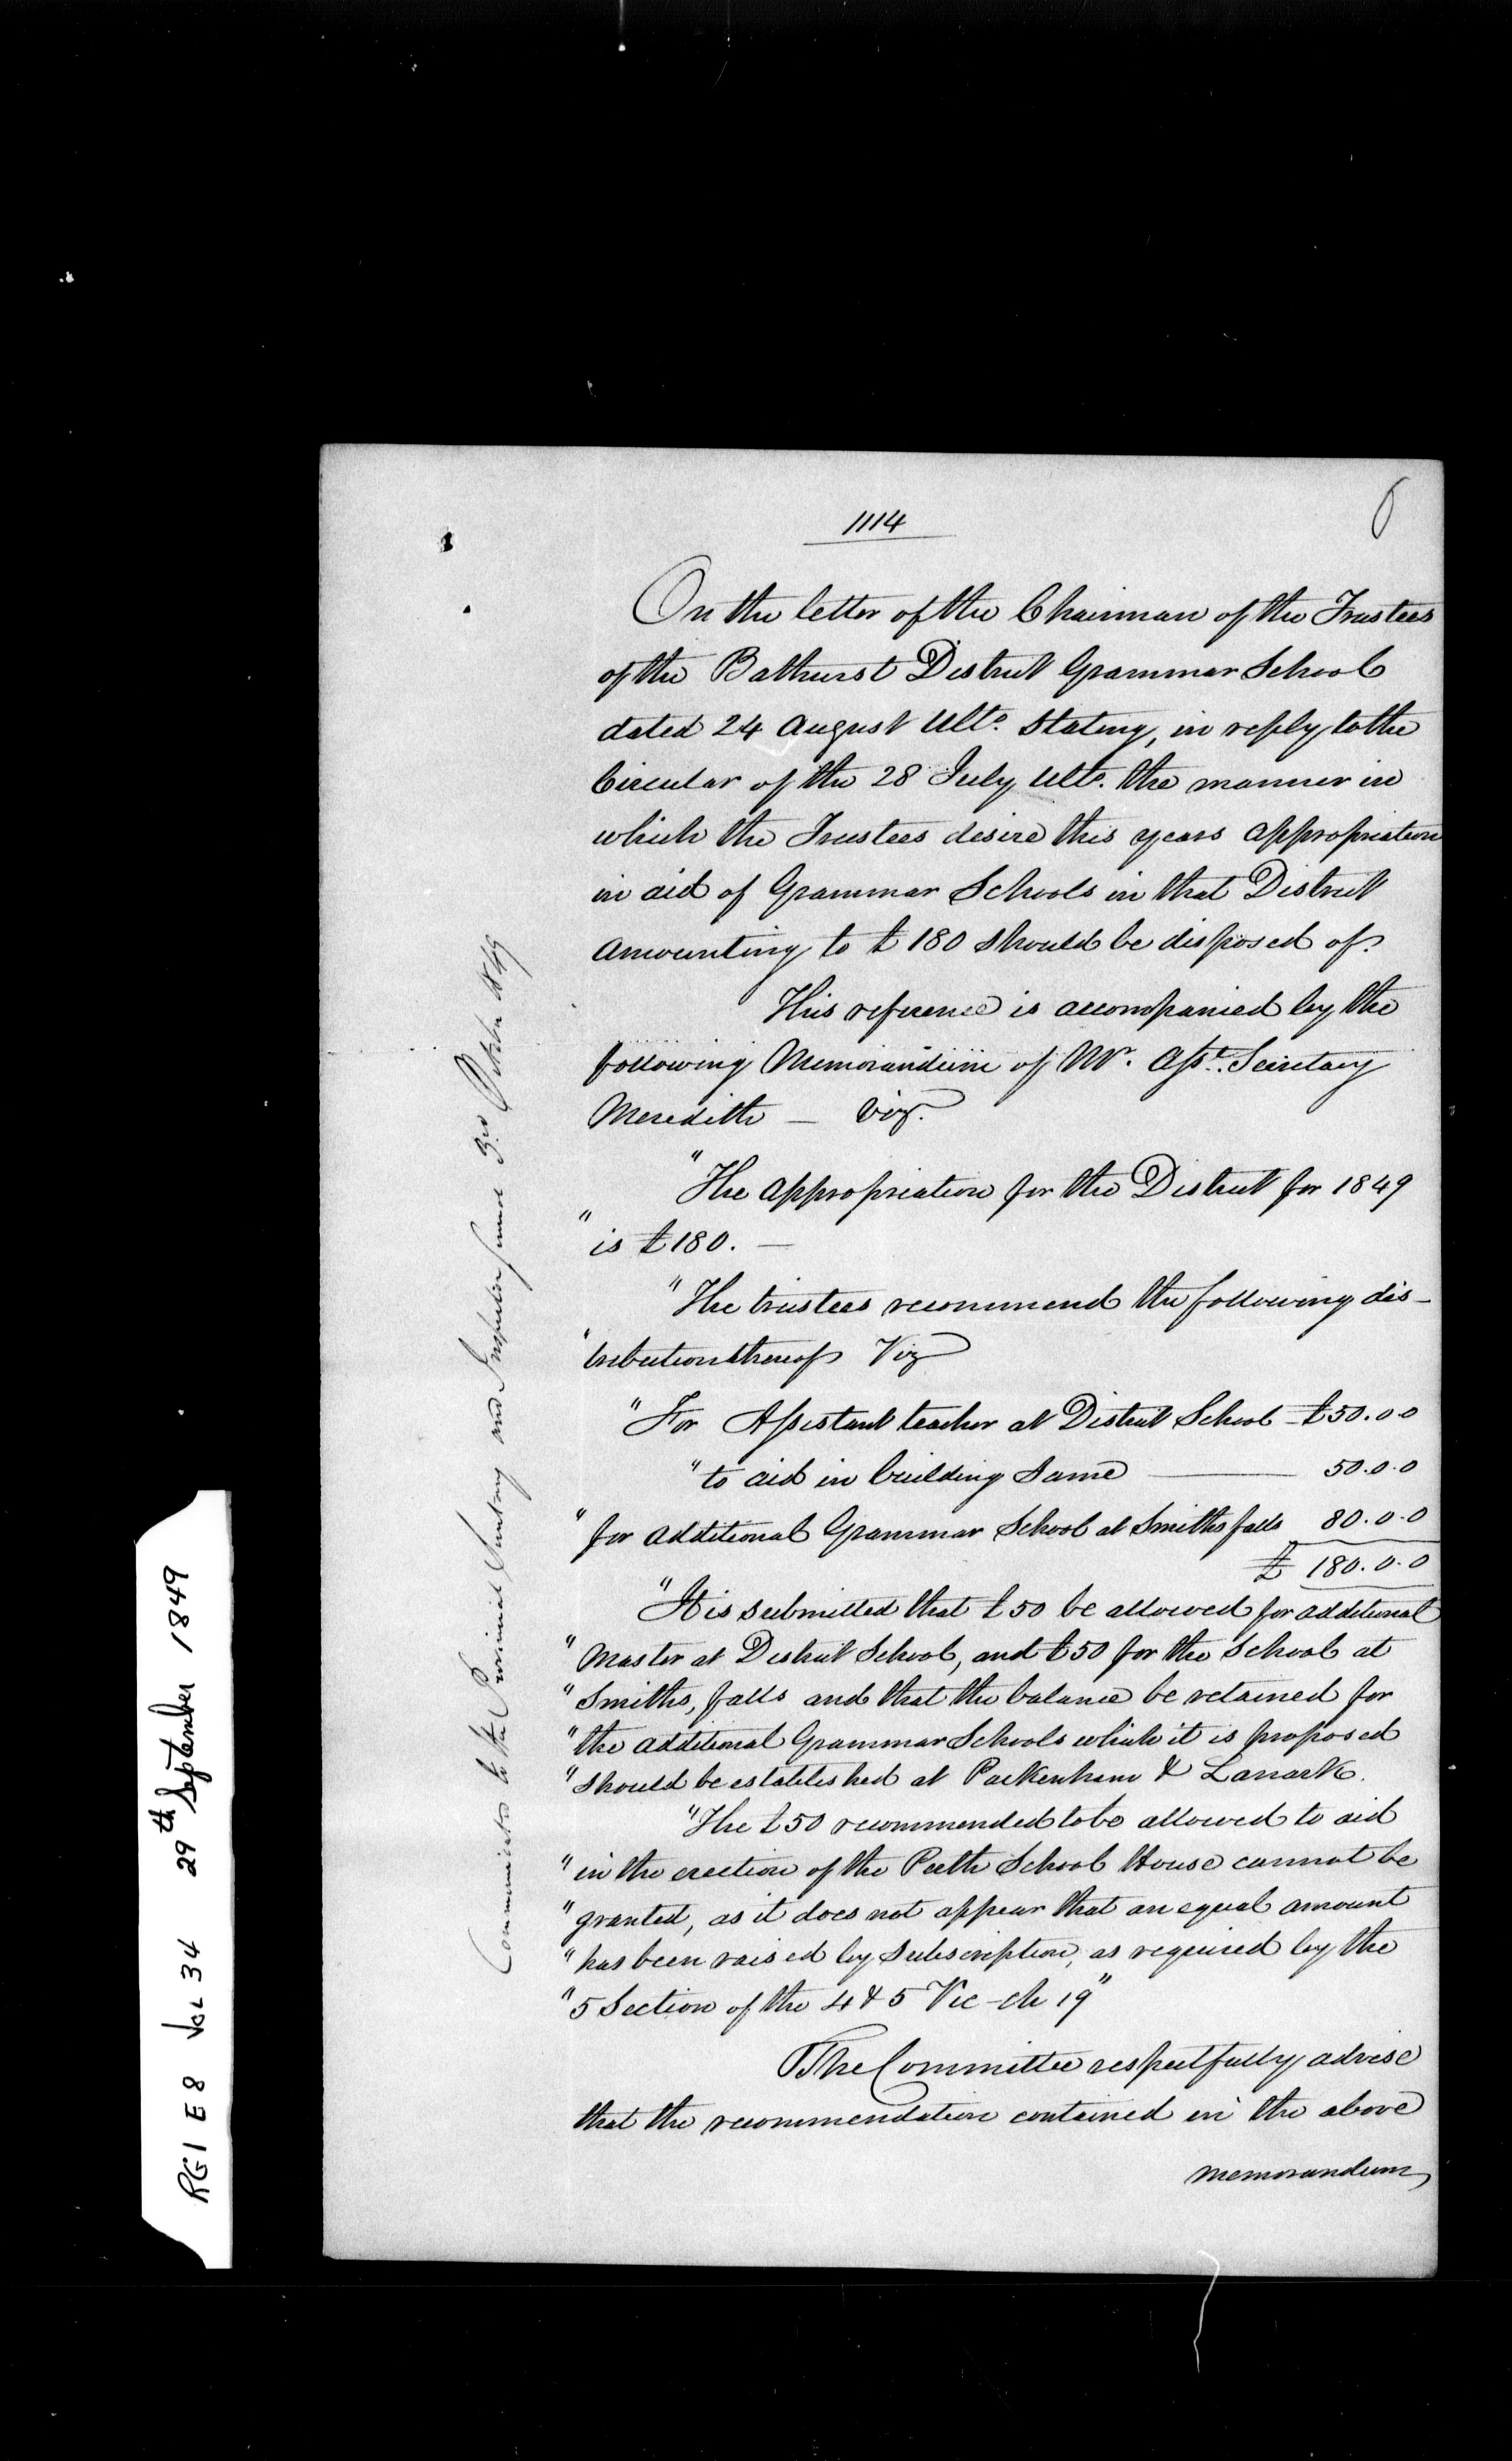 1114
6
On the letter of the Chairman of the Trustees
of the Bathurst District Grammar School
dated 24 August Ulto. Stating, in reply to the
Circular of the 28 July Ulto. the manner in
which the Trustees desire this years appropriation
in aid of Grammar Schools in that District
amounting to £180 should be disposed of.
This reference is accompanied by the
following Memorandum of Mr. Asst. Secretary
Meredith — Viz.
"The appropriation for the District for 1849
"is £180. —
"The trustees recommend the following dis-
"tribution thereof Viz
"For Assistant teacher at District School — £50.0 0
"to aid in building Same — 50.0.0
"for additional Grammar School at Smiths falls 80.0.0
£ 180.0.0
"It is submitted that £50 be allowed for additional
"Master at District School, and £50 for the School at
"Smiths, falls and that the balance be retained for
"the additional Grammar Schools which it is proposed
"should be established at Packenham & Lanark.
"The £50 recommended to be allowed to aid
"in the erection of the Perth School House cannot be
"granted, as it does not appear that an equal amount
"has been raised by Subscription, as required by the
"5 Section of the 4 & 5 Vic - ch 19"
The Committee respectfully advise
that the recommendation contained in the above
memorandum
to the Provincial Secretary and Inspector General 3rd October 1849
RG1 E8 Vol 34 29th September 1849